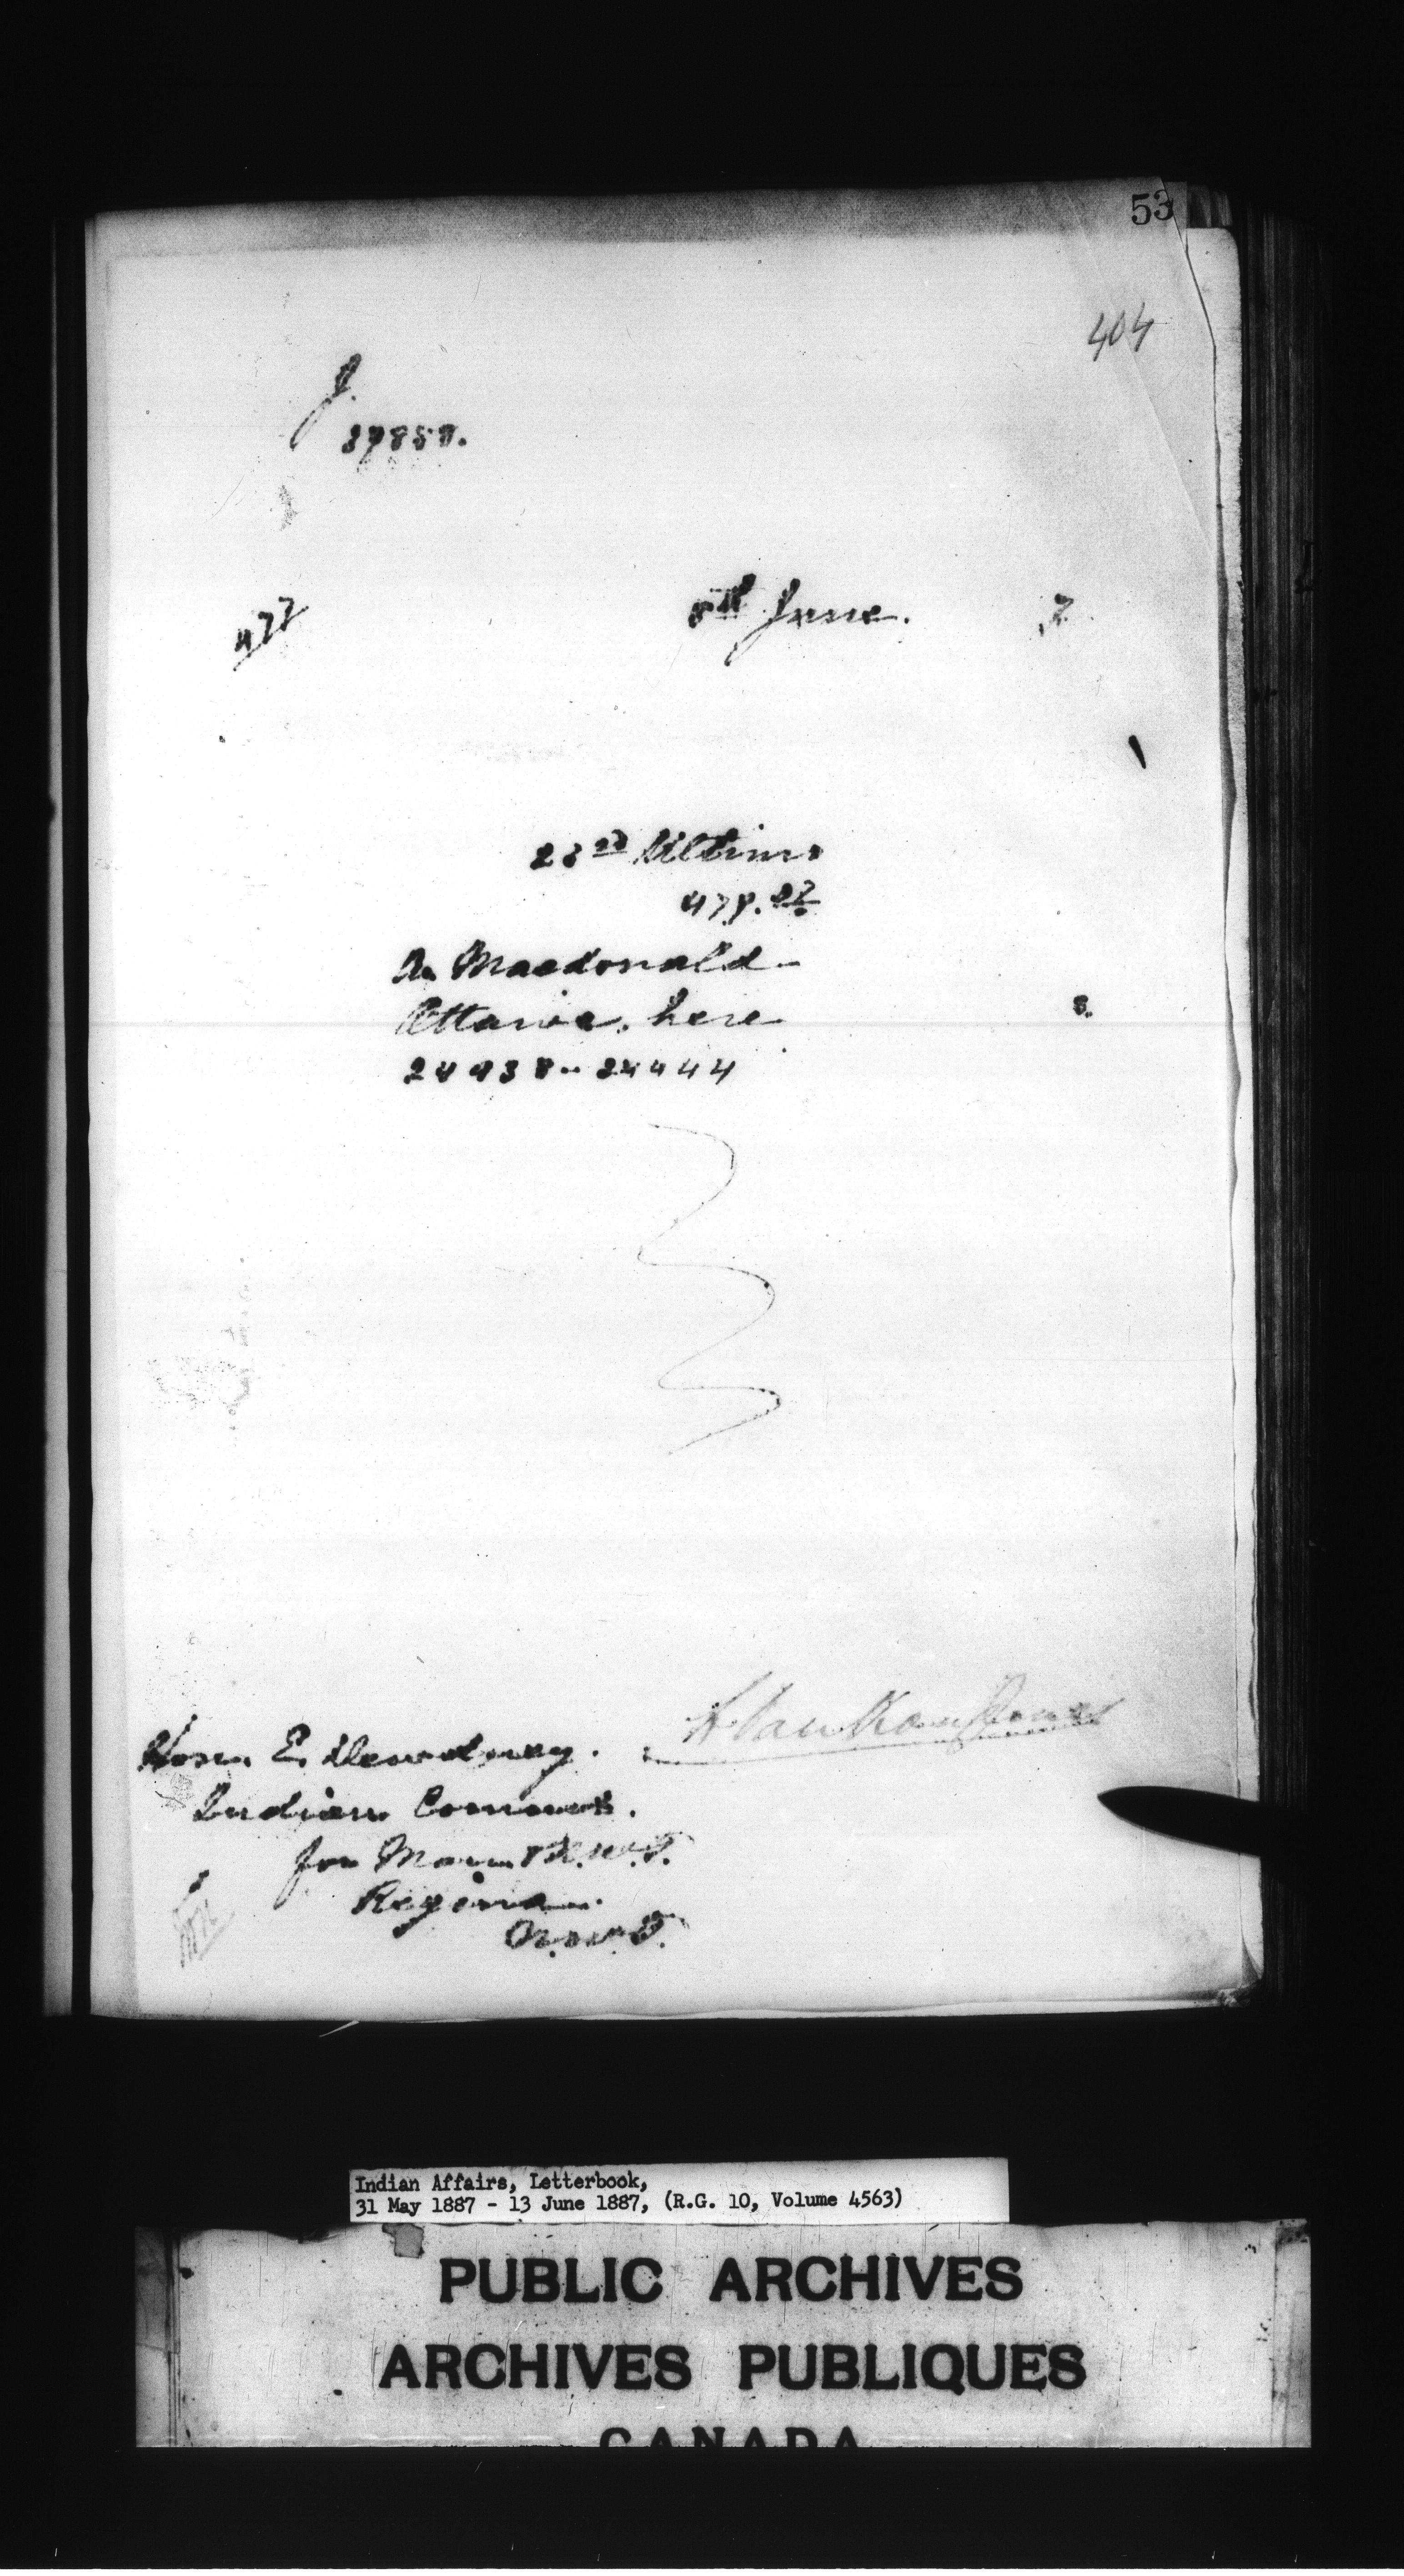 53
404
J.
37858.
477
8th June. 7.
23rd Ultimo
478.
A. Macdonald
Ottawa, here
s.
24438 - 24444
Hon. E. Dewdney.
Indian Commr.
for Man. & N.W.T.
Regina
N.W.T.
Indian Affairs, Letterbook,
31 May 1887 - 13 June 1887, (R.G. 10, Volume 4563)
PUBLIC ARCHIVES
ARCHIVES PUBLIQUES
CANADA